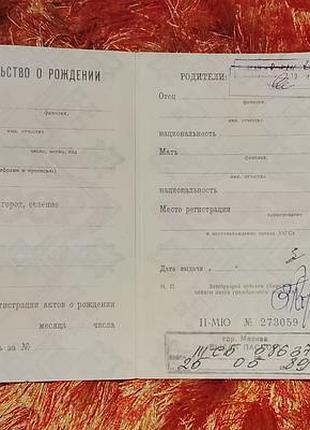 ЬСТВО О РОЖДЕНИИ
фамилия,
имя, отчество
число, месяц, год
ифрами и прописью)
город, селение
гистрации актов о рождения
месяца числа
ь за №
РОДИТЕЛИ:
19
Отец
фамилия,
имя, отчество
национальность
Мать
фамилия,
имя, отчество
национальность
Место регистрации
наименование
и местонахождение органа ЗАГСа
Дата выдачи
М. П.
II-МЮ № 273059
гор. Москва
ПАСПОРТ
III СБ
25 05 89